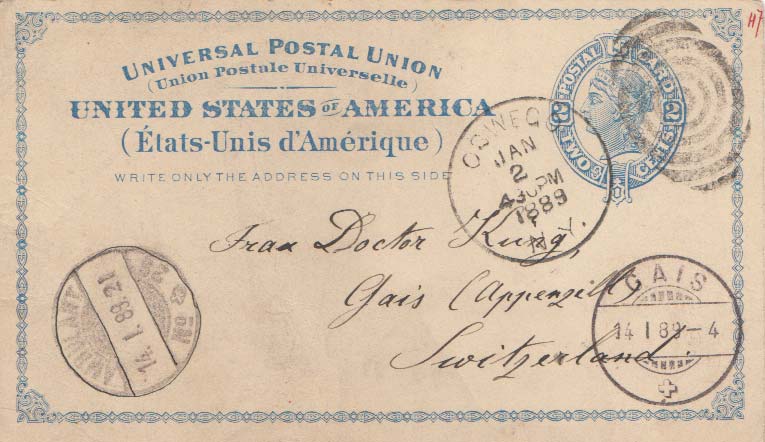 UNIVERSAL POSTAL UNION
(Union Postale Universelle)
UNITED STATES OF AMERICA
(États-Unis d'Amérique)
WRITE ONLY THE ADDRESS ON THIS SIDE
POSTAL CARD
2 2
TWO CENTS
H7
OSWEGO
JAN
2
430PM
1889
N.Y.
Frau Doctor Küng,
Gais (Appenzell)
Switzerland.
AMBULANT
14. I. 89.21
GAIS
14 I 89–4